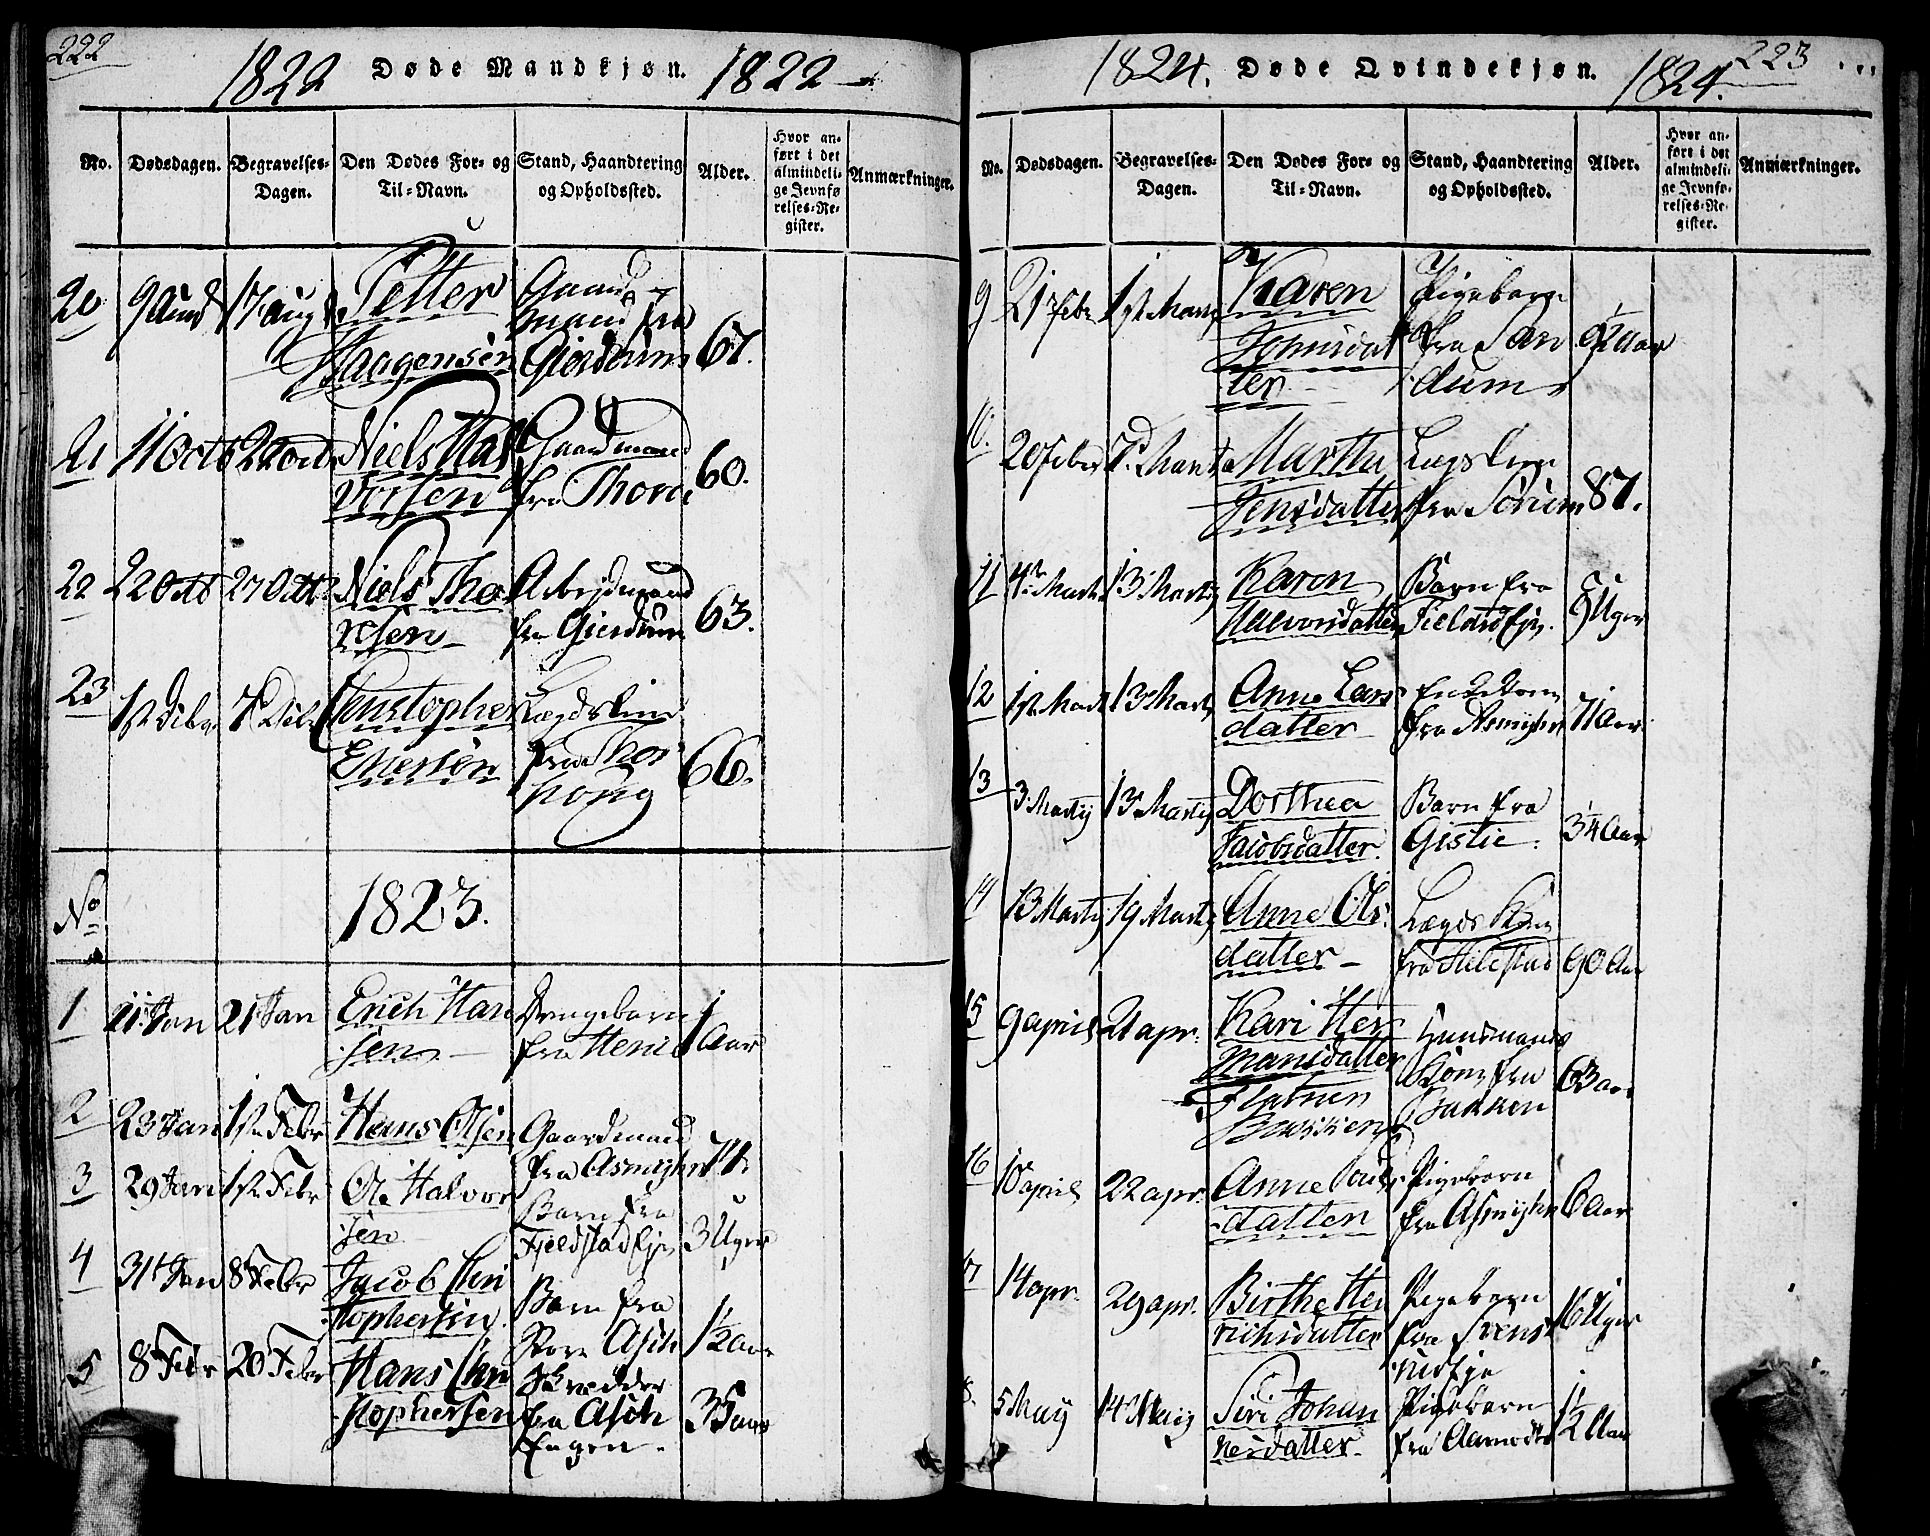 222
1822 Døde Mandkjøn. 1822
No.
Dødsdagen.
Begravelses-
Dagen.
Den Dødes For- og
Til-Navn.
Stand, Haandtering
og Opholdssted.
Alder.
Hvor an-
ført i det
almindeli-
ge Jevnfø-
relses-Re-
gister.
Anmærkninger.
20 17 aug Petter
Haagensen
Gaard
mand fra
Gierdrum
67.
21 11 Octb 22 Octb Niels Hal
vorsen
Gaardmand
fra
60.
22 22 Octb 27 Octb Niels Tho
resen
Arbejdmand
fra Gierdrum
63.
23 1st Debr 7 Debr Christopher
Lægdslem
fra
66.
No
1823.
1 11 Jan 21 Jan Erich Han
sen
Drengebarn
fra
1 Aar
2 23 Jan 1st Febr Hans Olsen
Gaardmand
fra Asmyhr
74
3 29 Jan 1st Febr Ole Halvor
sen
Barn fra
Fjeldstad Eje
3 Uger
4 31t Jan 8 Febr Jacob Chri
stophersen
Barn fra
Store Asch
1½ aar
5 8 Febr 20 Febr Hans Chri
stophersen
Skredder
fra Asch
Engen
35 aar
223
1824. Døde Qvindekjøn. 1824.
No.
Dødsdagen.
Begravelses-
Dagen.
Den Dødes For- og
Til-Navn.
Stand, Haandtering
og Opholdssted.
Alder.
Hvor an-
ført i det
almindeli-
ge Jevnfø-
relses-Re-
gister.
Anmærkninger.
9 21 Febr 1st Marty Karen
Johnsdat
ter
Pigebarn
fra San
dum
Aar
10. 20 Febr 7d Marty Martha
Jensdatter
Lægslem
fra Sörum
87.
11 4de Marty 13 Marty Karen
Halvorsdatter
Barn fra
Fieldstad Eje.
Uger
12 1st Marty 13 Marty Anne Lars
datter
Enkekone
fra Asmyhr
71 Aar
13 3 Martij 13 Martij Dorthea
Jacobsdatter.
Barn fra
Gistie.
3¼ Aar
14 13 Martij 19 Martij Anne Ols
datter
Lægdslem
fra Hilestad
90 Aar
15 9 april 21 apr: Kari Her
mansdatter
Flatner
Bakken
Huusmands
Kone fra
Bakken
63 aar
16 10 april 22 apr. Anne Pouls
datter
Pigebarn
fra Asmyhr
6 Aar
17 14 apr. 29 apr. Birthe Hen
richsdatter
Pigebarn
fra Svens
rud Eje
16 Uger
18. 5 Maij 14 Maij Siri Johan
nesdatter
Pigebarn
fra Aamodt
1½ Aar